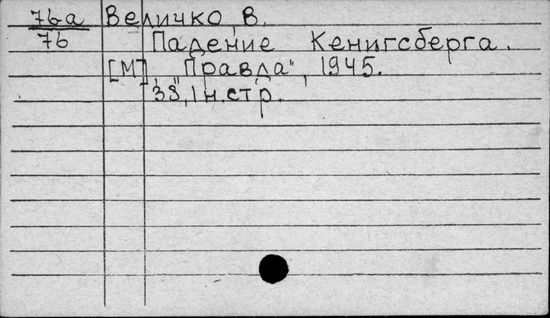 76а Величко, В.
76 Падение Кенигсберга.
[М], "Правда", 1945.
38, 1 н. стр.